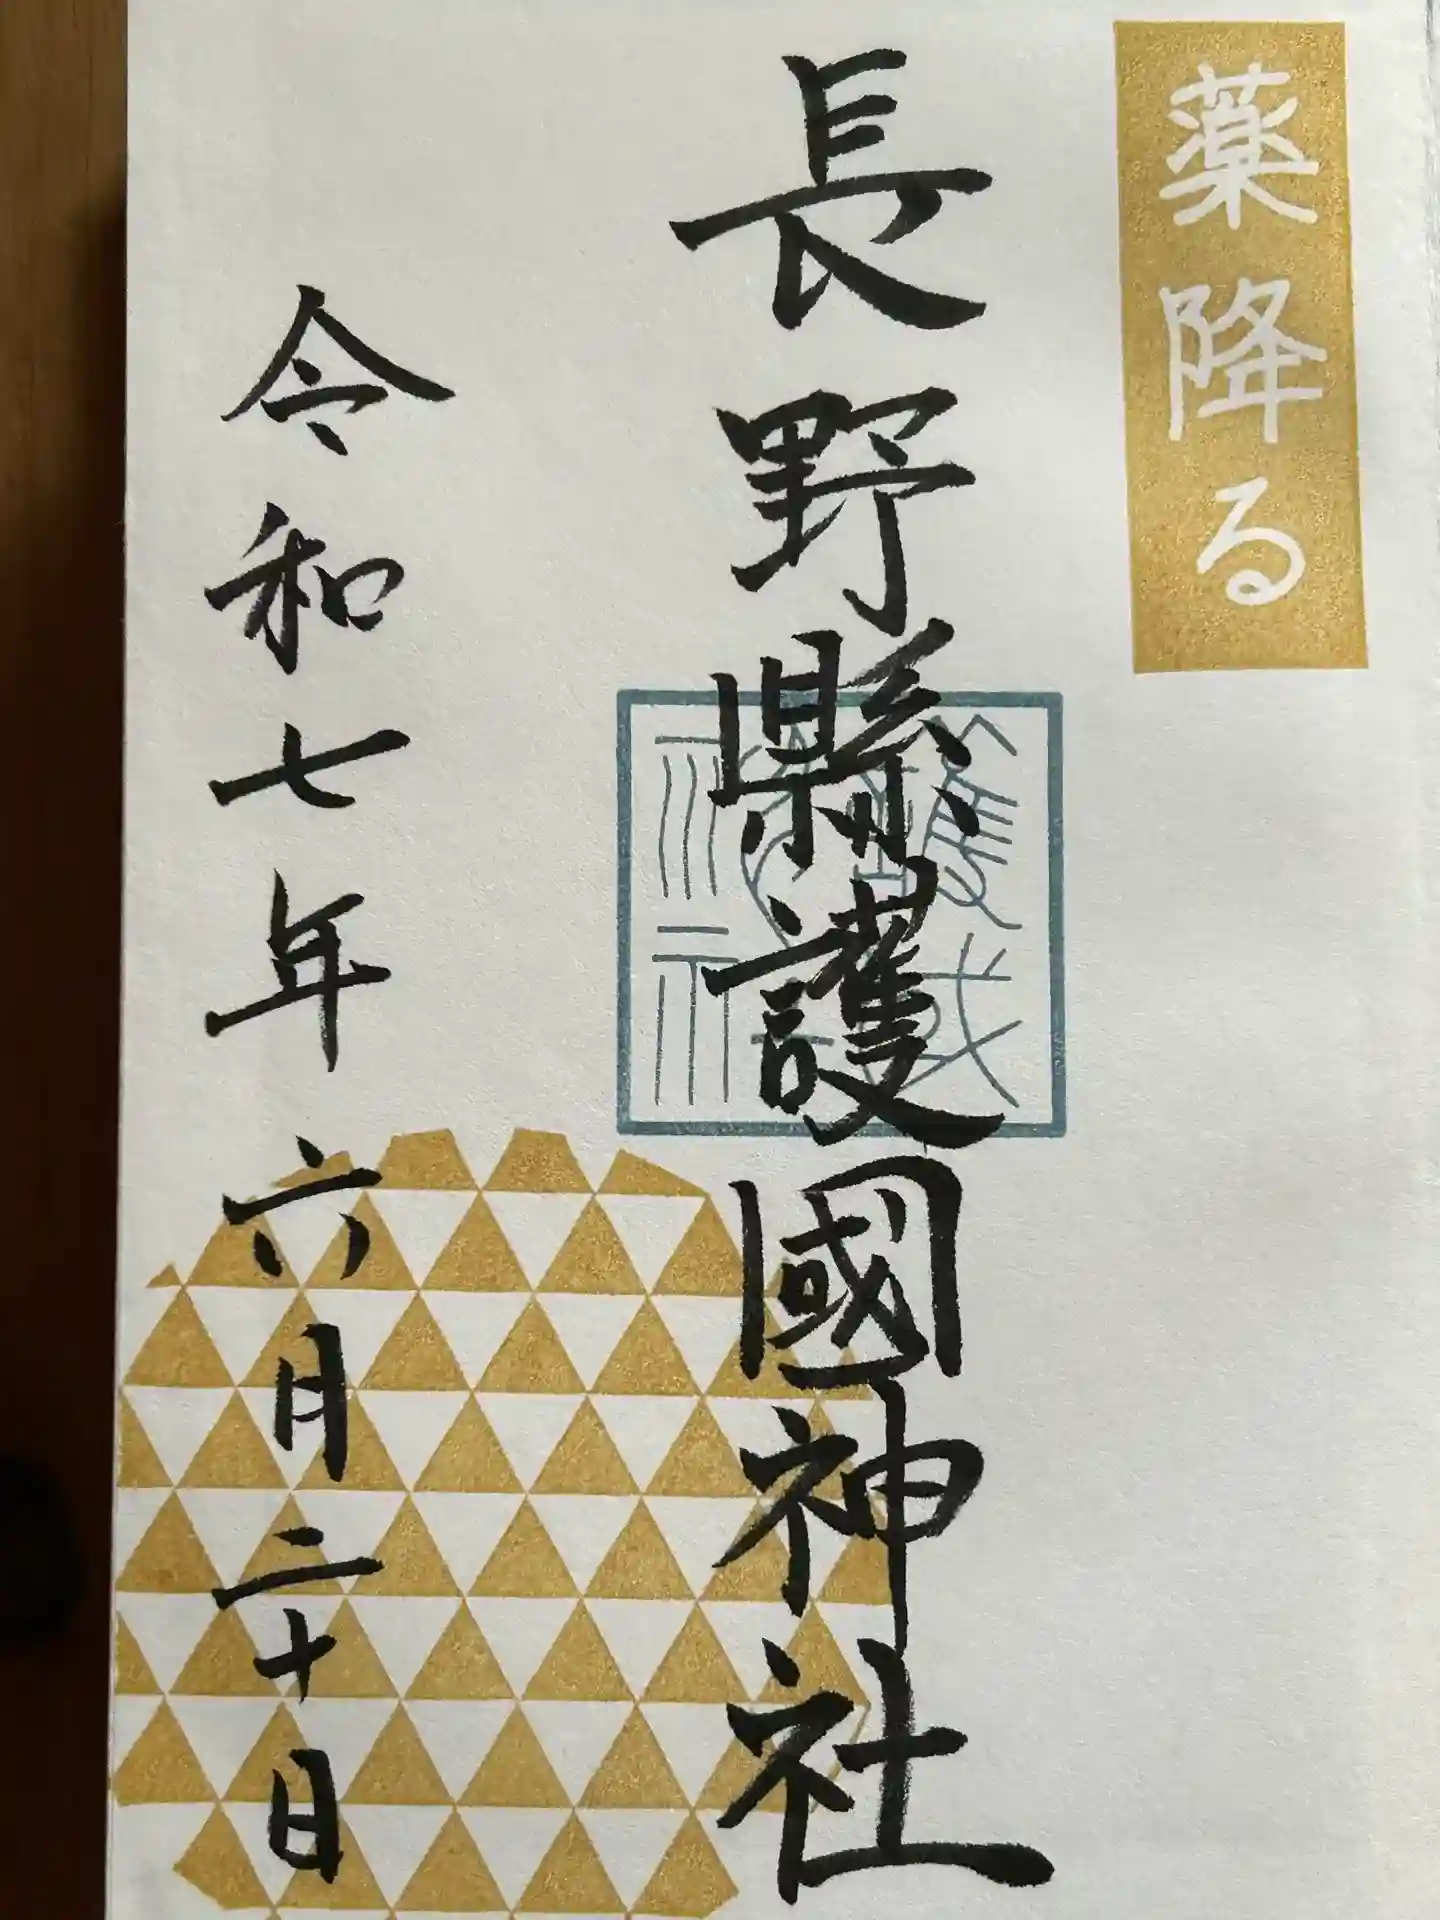 薬降る
長野縣護國神社
令和七年六月二十日